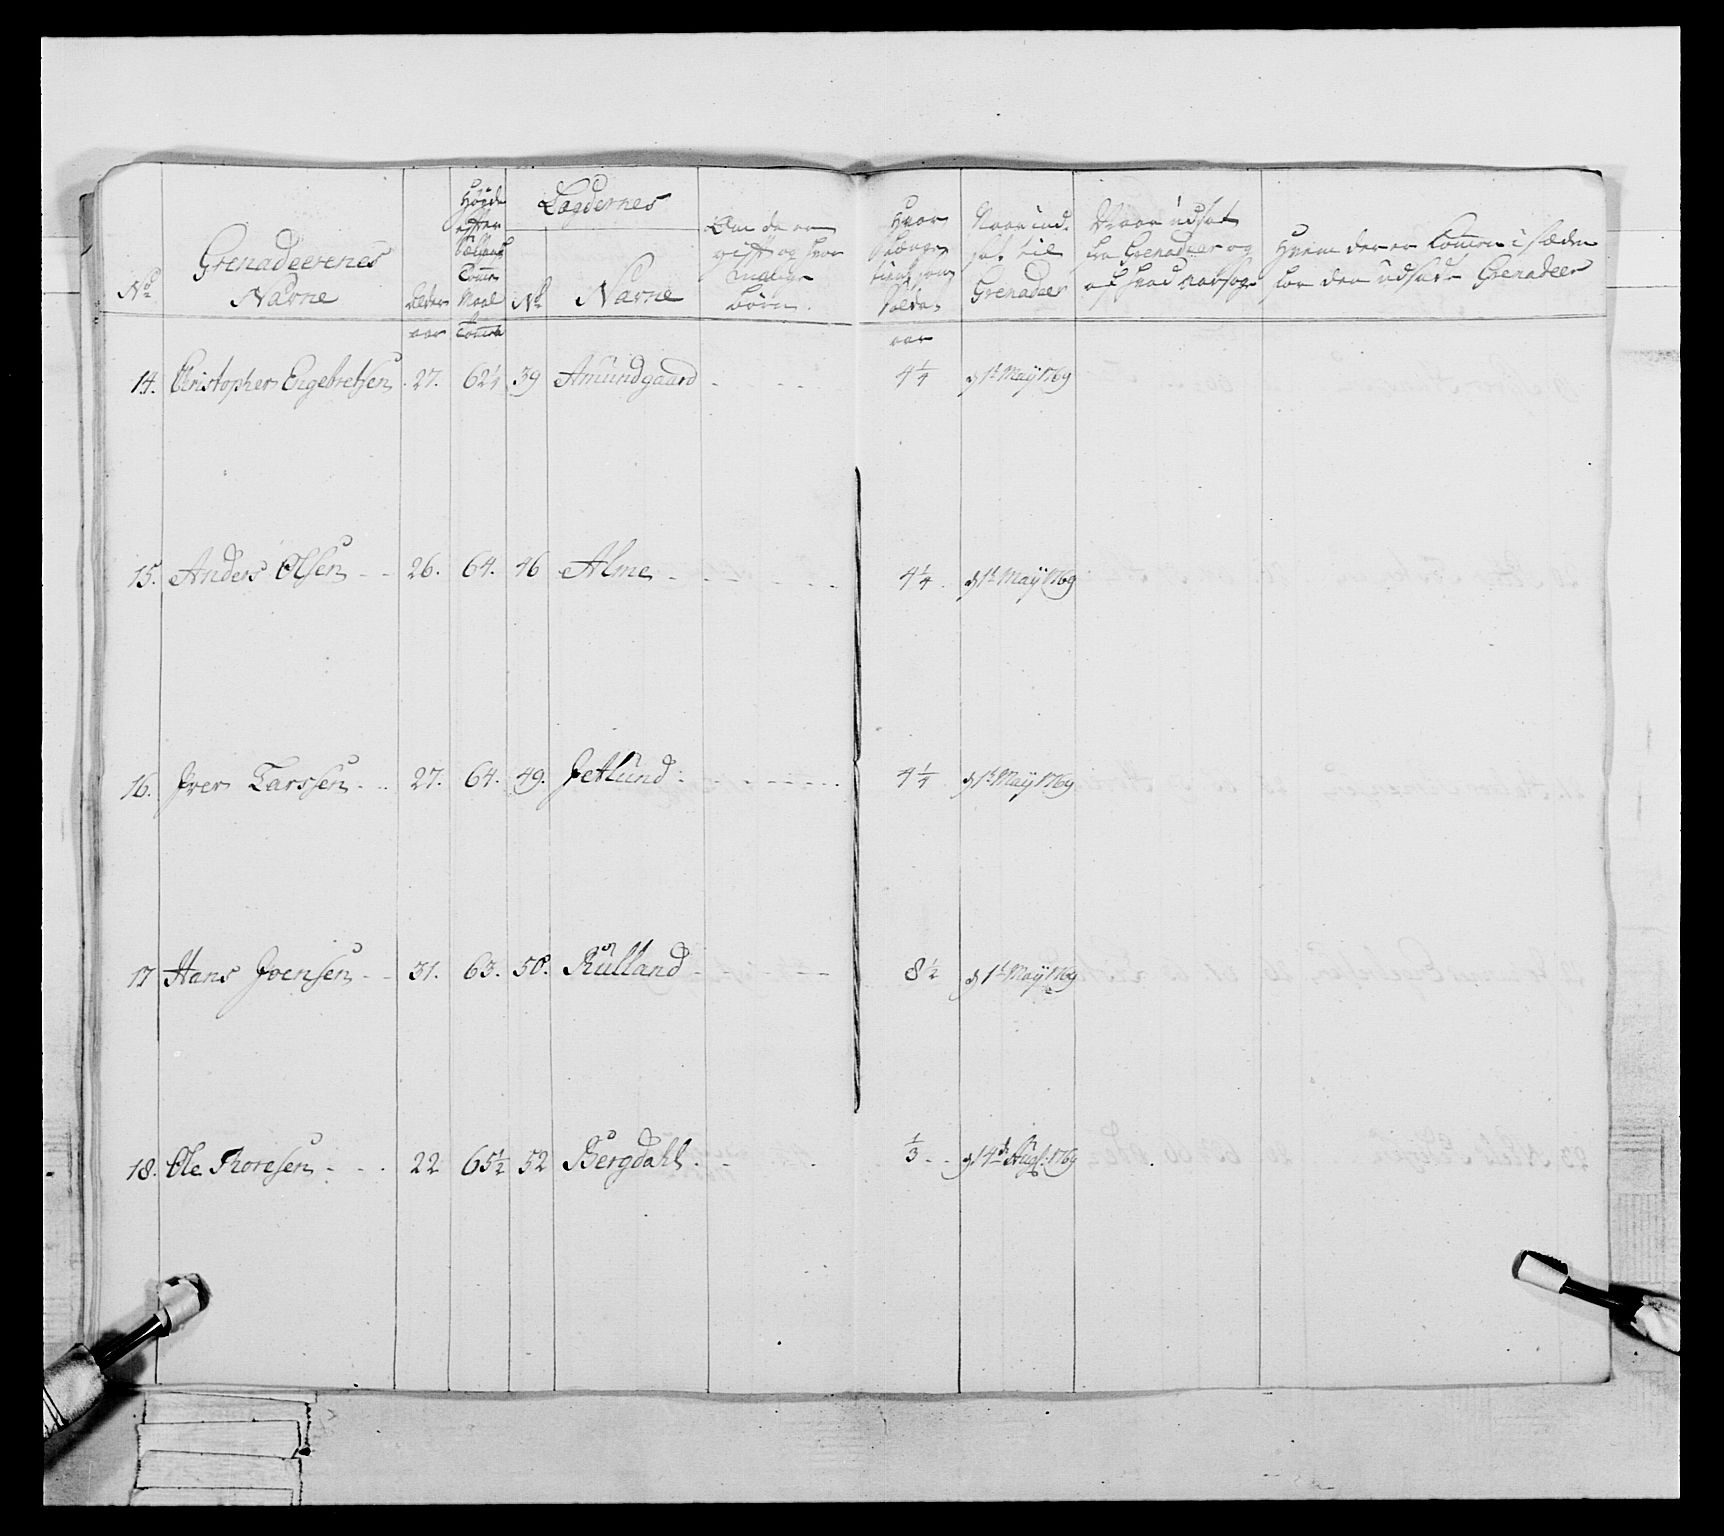 No
Grenadeerenes
Navne
Alder
aar
Høyde
efter
Tomme
Maal
Tomme
Lægdernes
No
Navne
Om de er
gift og hvor
mange
børn.
Hvor
længe
tient som
Soldat
aar
Naar ind-
sat til
Grenadeer
Naar udsat
fra Grenadeer og
af hvad aarsage
Hvem der er kommen i stæden
for den udsatte Grenadeer
14. Christopher Engebretsen 27. 62½ 39 Amundgaard - - - 4¼ d 1t May 1769
15. Anders Olsen - - 26. 64. 46 Alme - - - - - 4¼ d 1t May 1769
16. Iver Larssen - - 27. 64. 49. Jetlund - - - - - 4¼ d 1t May 1769
17 Hans Joensen - - 31. 63. 50. Rulland - - - - 8½ d 1t May 1769
18. Ole Thoresen - - - 22 65½ 52 Bergdahl - - - ⅓ - - d 14de Aug: 1769